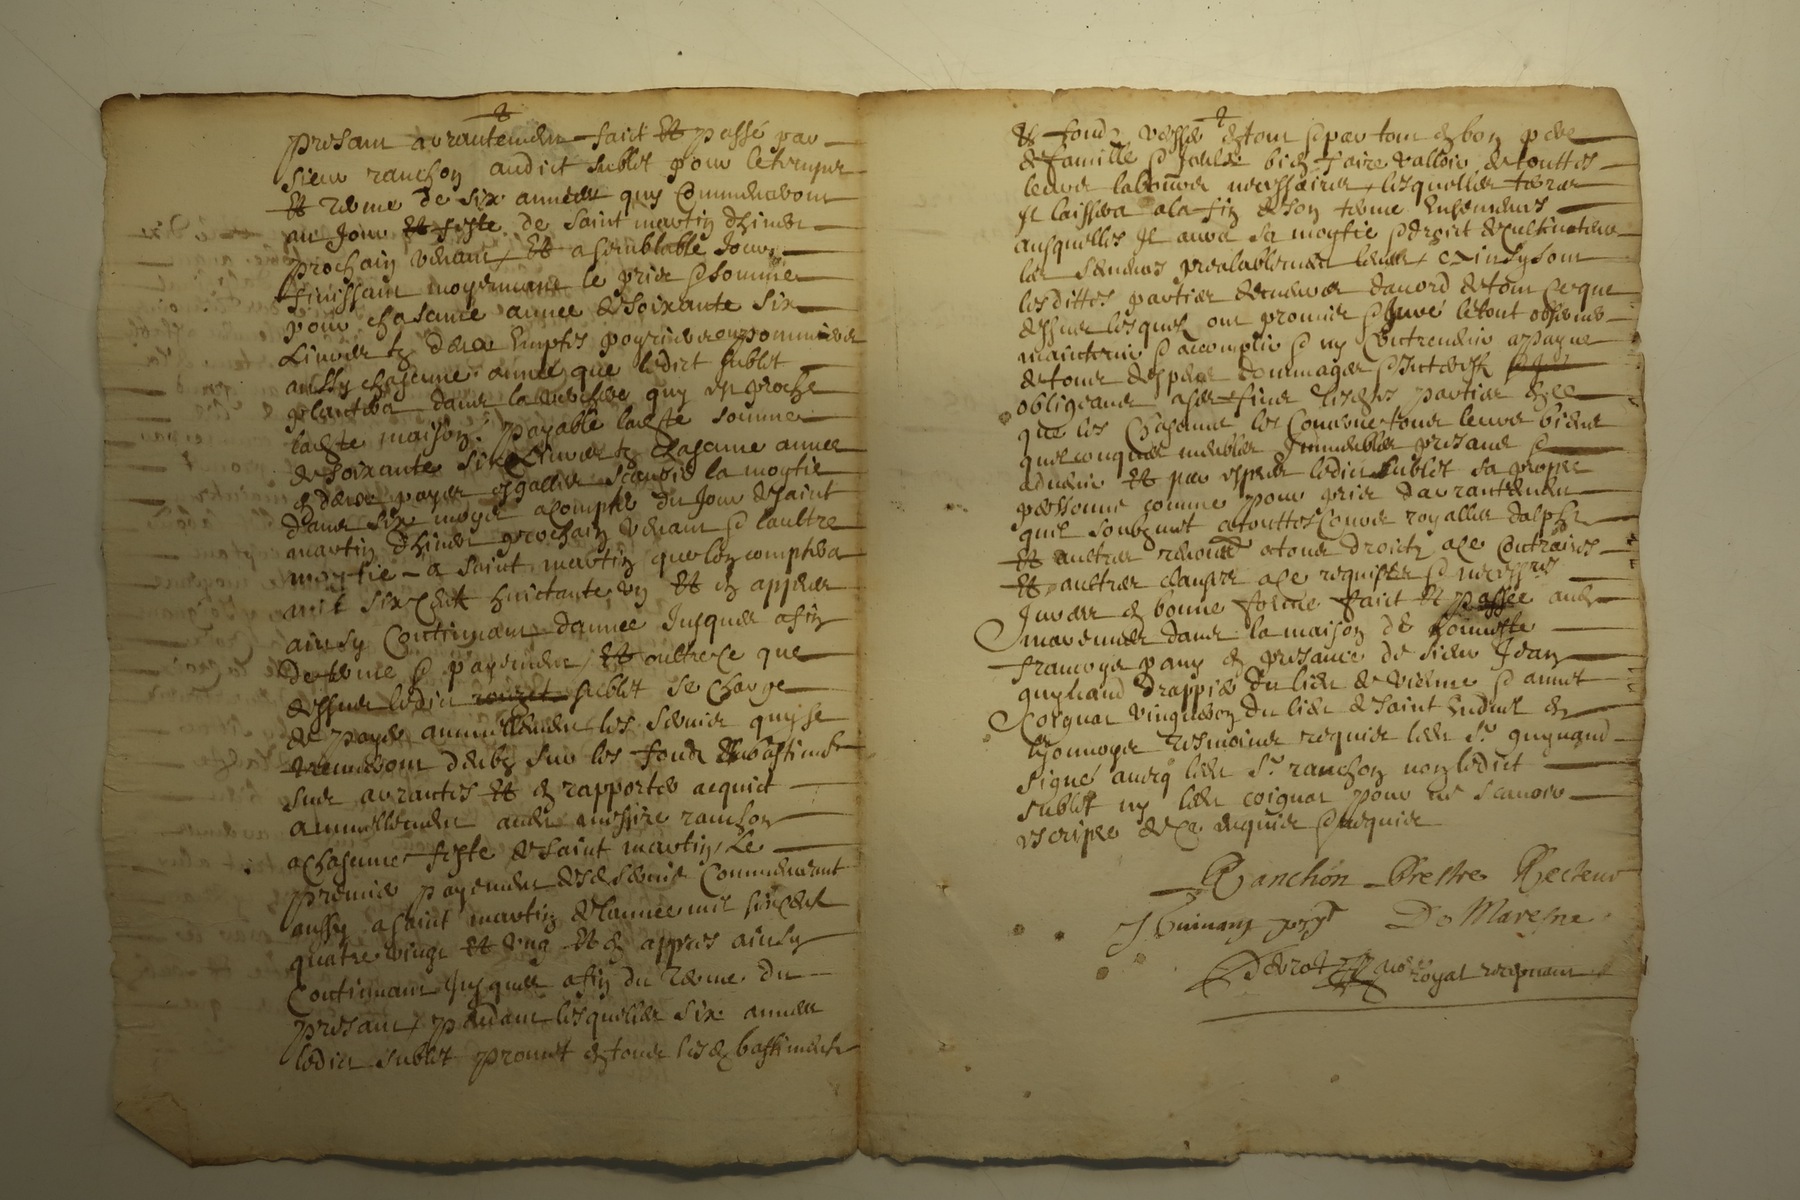 presant arrantement faict et passé par
sieur ranchon audict sublet pour le temps
et terme de six années quy commenceront
au jour et feste de saint martin dhiver
prochain venant et a semblable jour
finissant moyennant le prix et somme
pour chascune année de soixante six
livres tz
aussy chascune année que ledict sublet
plantera dans la quy est proche
ladte maison, payable ladte somme
de soixante six livres tz chascune année
en deux payes esgalles scavoir la moytie
dans six moys a compter du jour de saint
martin dhiver prochain venant et laultre
moytie a saint martin que lon comptera
mil six cent huictante un et en appres
ainsy continuant dannée jusques a fin
de terme et payement, et oultre ce que
dessus ledict sublet se charge
de payer annuellement les servis quy se
deubz sur les fondz et bastiments
sus arrantes et en rapporter acquict
annuellement audt messire ranchon
a chascune feste de saint martin, le
premier payement desd servis commencant
aussy a saint martin de lannée mil six cent
quatre vingt et ung et en appres ainsy
continuant jusques a fin du terme du
presant, pendant lesquelles six années
ledict sublet promet en tous lesd bastiments
et fondz verser en tout et par tout en bon pere
de famille et bien faire valloir de touttes
leurs labeures necessaires, lesquelles terres
il laissera a la fin de son terme ensemencés
ausquelles il aura sa moytie et droict de cultivateur
les semens prealablement levés, ainsy sont
lesdittes parties demeurés daccord de tout ce que
dessus lesquels ont promis et juré le tout observer
maintenir et accomplir et ny contrevenir a payne
de tous despens dommages et interests
obligeants a ces fins lesdts parties en ce
que les chascune les concerne tous leurs biens
quelconques meubles immeubles presants et
advenir et par expres ledict sublet sa propre
personne comme pour prix darrantement
quil soubzmet a touttes cours royalles dalphi
et aultres renoncé a tous droictz a ce contraires
et aultres clauses a ce requises et necessres
Jurées en bonne forme faict et passé aud
marennes dans la maison de honneste
francoys pany en presance de sieur Jean
guynand drappier du lieu de vienne et annet
coignat vigneron du lieu de saint en
lyonnoys tesmoins requis led Sr guynand
signé avecq led Sr ranchon non ledict
sublet ny led coignat pour ne scavoir
escripre de ce enquis et requis
Ranchon Prestre Recteur
J Guinang prnt De Maresne
royal recepvant